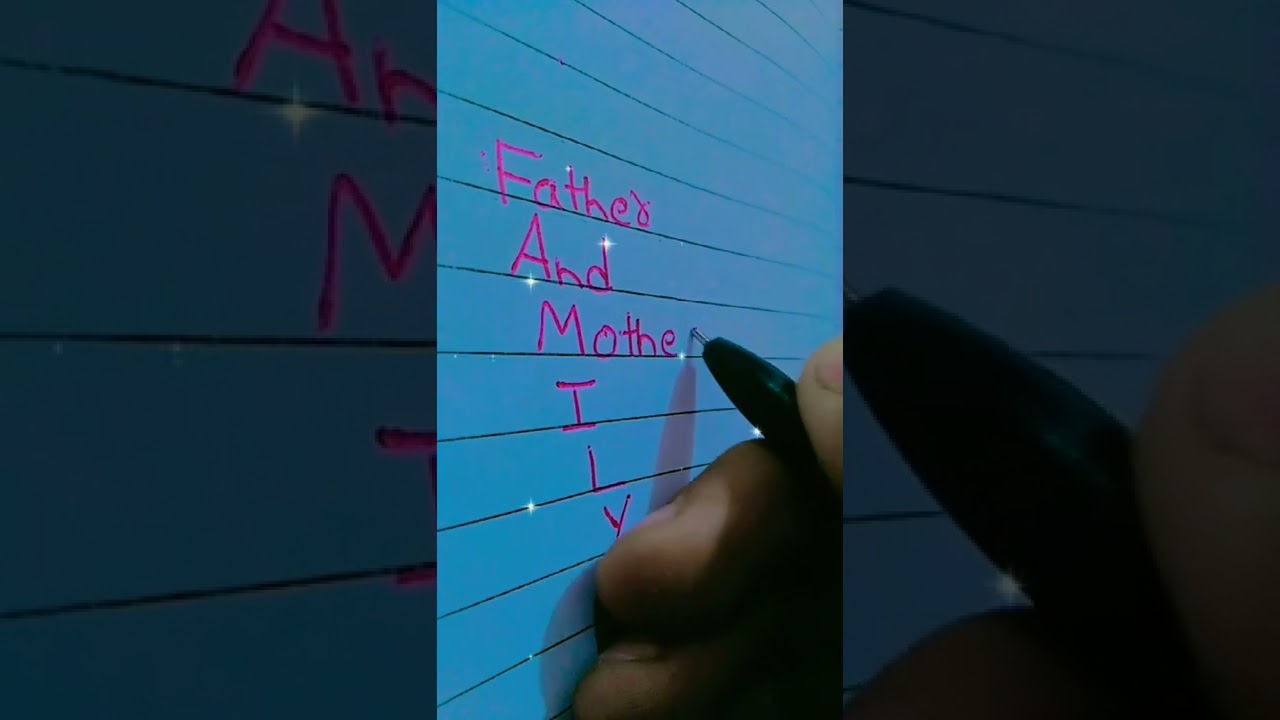 Father
And
Mothe
I
L
Y